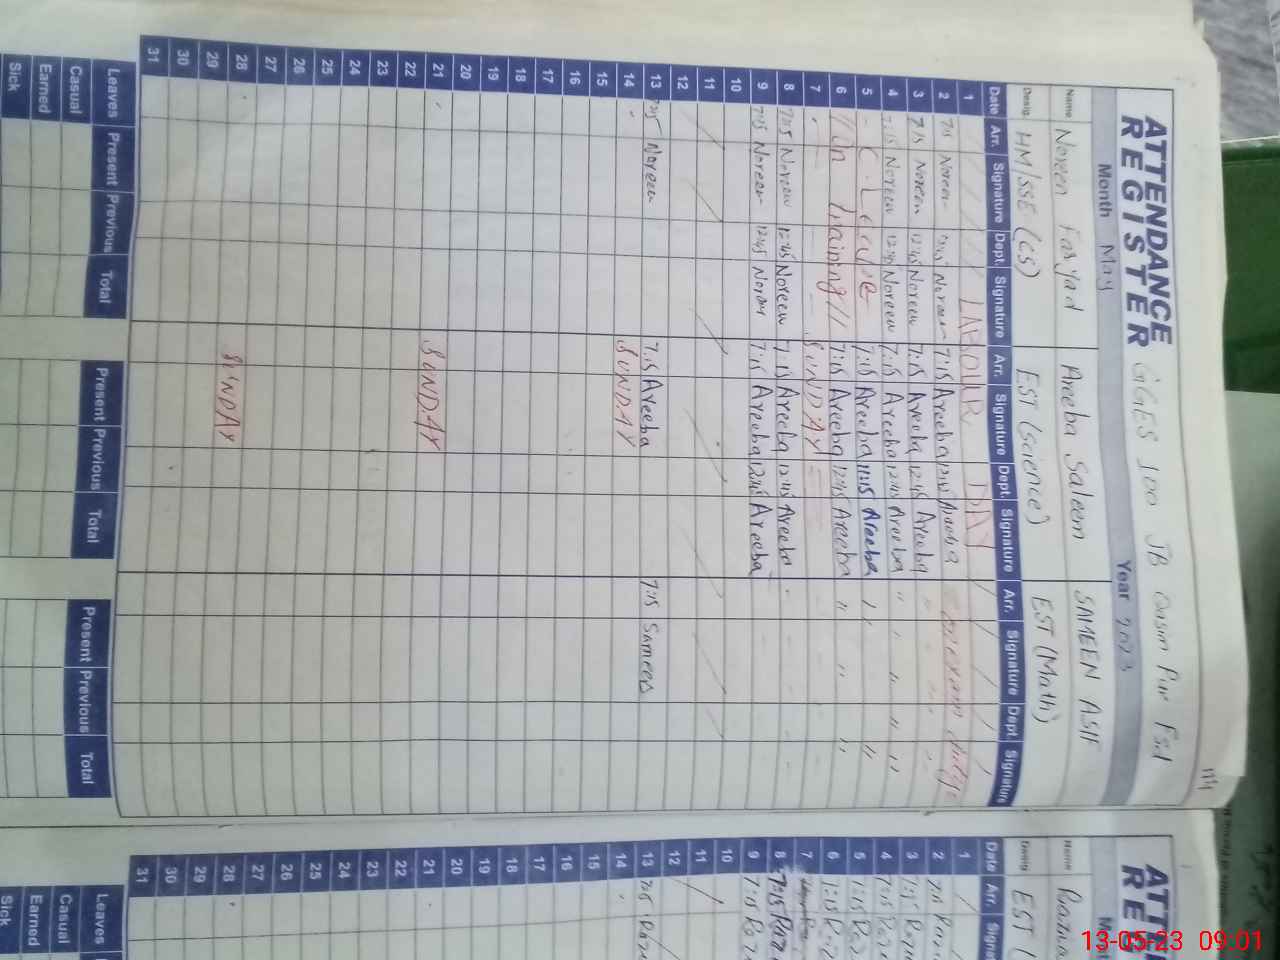 ATTENDANCE REGISTER GGES 100 JB Qasim Pur Fsd
Month May Year 2023
Name Noreen Areeba Saleem SAMEEN ASIF
Desig. HM/SSE (CS) EST (Science) EST (Math)
Date Arr. Signature Dept. Signature Arr. Signature Dept. Signature Arr. Signature Dept. Signature
1 LABOUR DAY
2 7:15 Noreen 12:45 Noreen 7:15 Areeba 12:45 Areeba duty
3 7:15 Noreen 12:45 Noreen 7:15 Areeba 12:45 Areeba " "
4 7:15 Noreen 12:45 Noreen 7:15 Areeba 12:45 Areeba " " " "
5 C. Leave 7:15 Areeba 11:15 Areeba " " "
6 On training 7:15 Areeba 12:45 Areeba " " "
7 SUNDAY
8 7:15 Noreen 12:45 Noreen 7:15 Areeba 12:45 Areeba
9 7:15 Noreen 12:45 Noreen 7:15 Areeba 12:45 Areeba
10
11
12
13 7:15 Noreen 7:15 Areeba 7:15 Sameen
14 SUNDAY
15
16
17
18
19
20
21 SUNDAY
22
23
24
25
26
27
28 SUNDAY
29
30
31
Leaves Present Previous Total Present Previous Total Present Previous Total
Casual
Earned
Sick
Name
Desig. EST
Date Arr.
1
2 7:15
3 7:15
4 7:15
5 7:15
6 7:15
7
8 7:15
9 7:15
10
11
12
13 7:15
14
15
16
17
18
19
20
21
22
23
24
25
26
27
28
29
30
31
Leaves
Casual
Earned
Sick
13-05-23 09:01